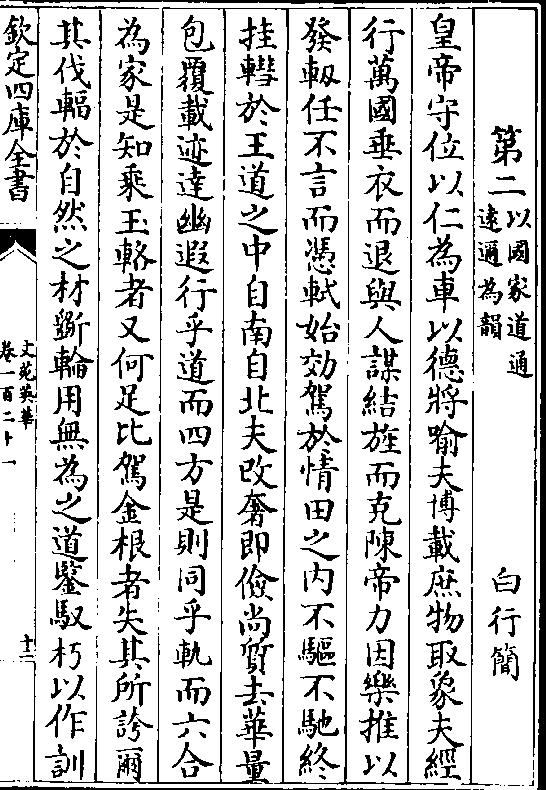 第二以國家道通遠邇為韻 白行簡
皇帝守位以仁為車以德將喻夫博載庶物取象夫經
行萬國垂衣而退與人謀結旌而克陳帝力因樂推以
發軔任不言而憑軾始效駕於情田之內不驅不馳終
挂轊於王道之中自南自北夫改奢即儉尚質去華量
包覆載迹達幽遐行乎道而四方是則同乎軌而六合
為家是知乘玉輅者又何足比駕金根者失其所誇爾
其伐輻於自然之材斵輪用無為之道鑒馭朽以作訓
欽定四庫全書
文苑英華
卷一百二十一
十二